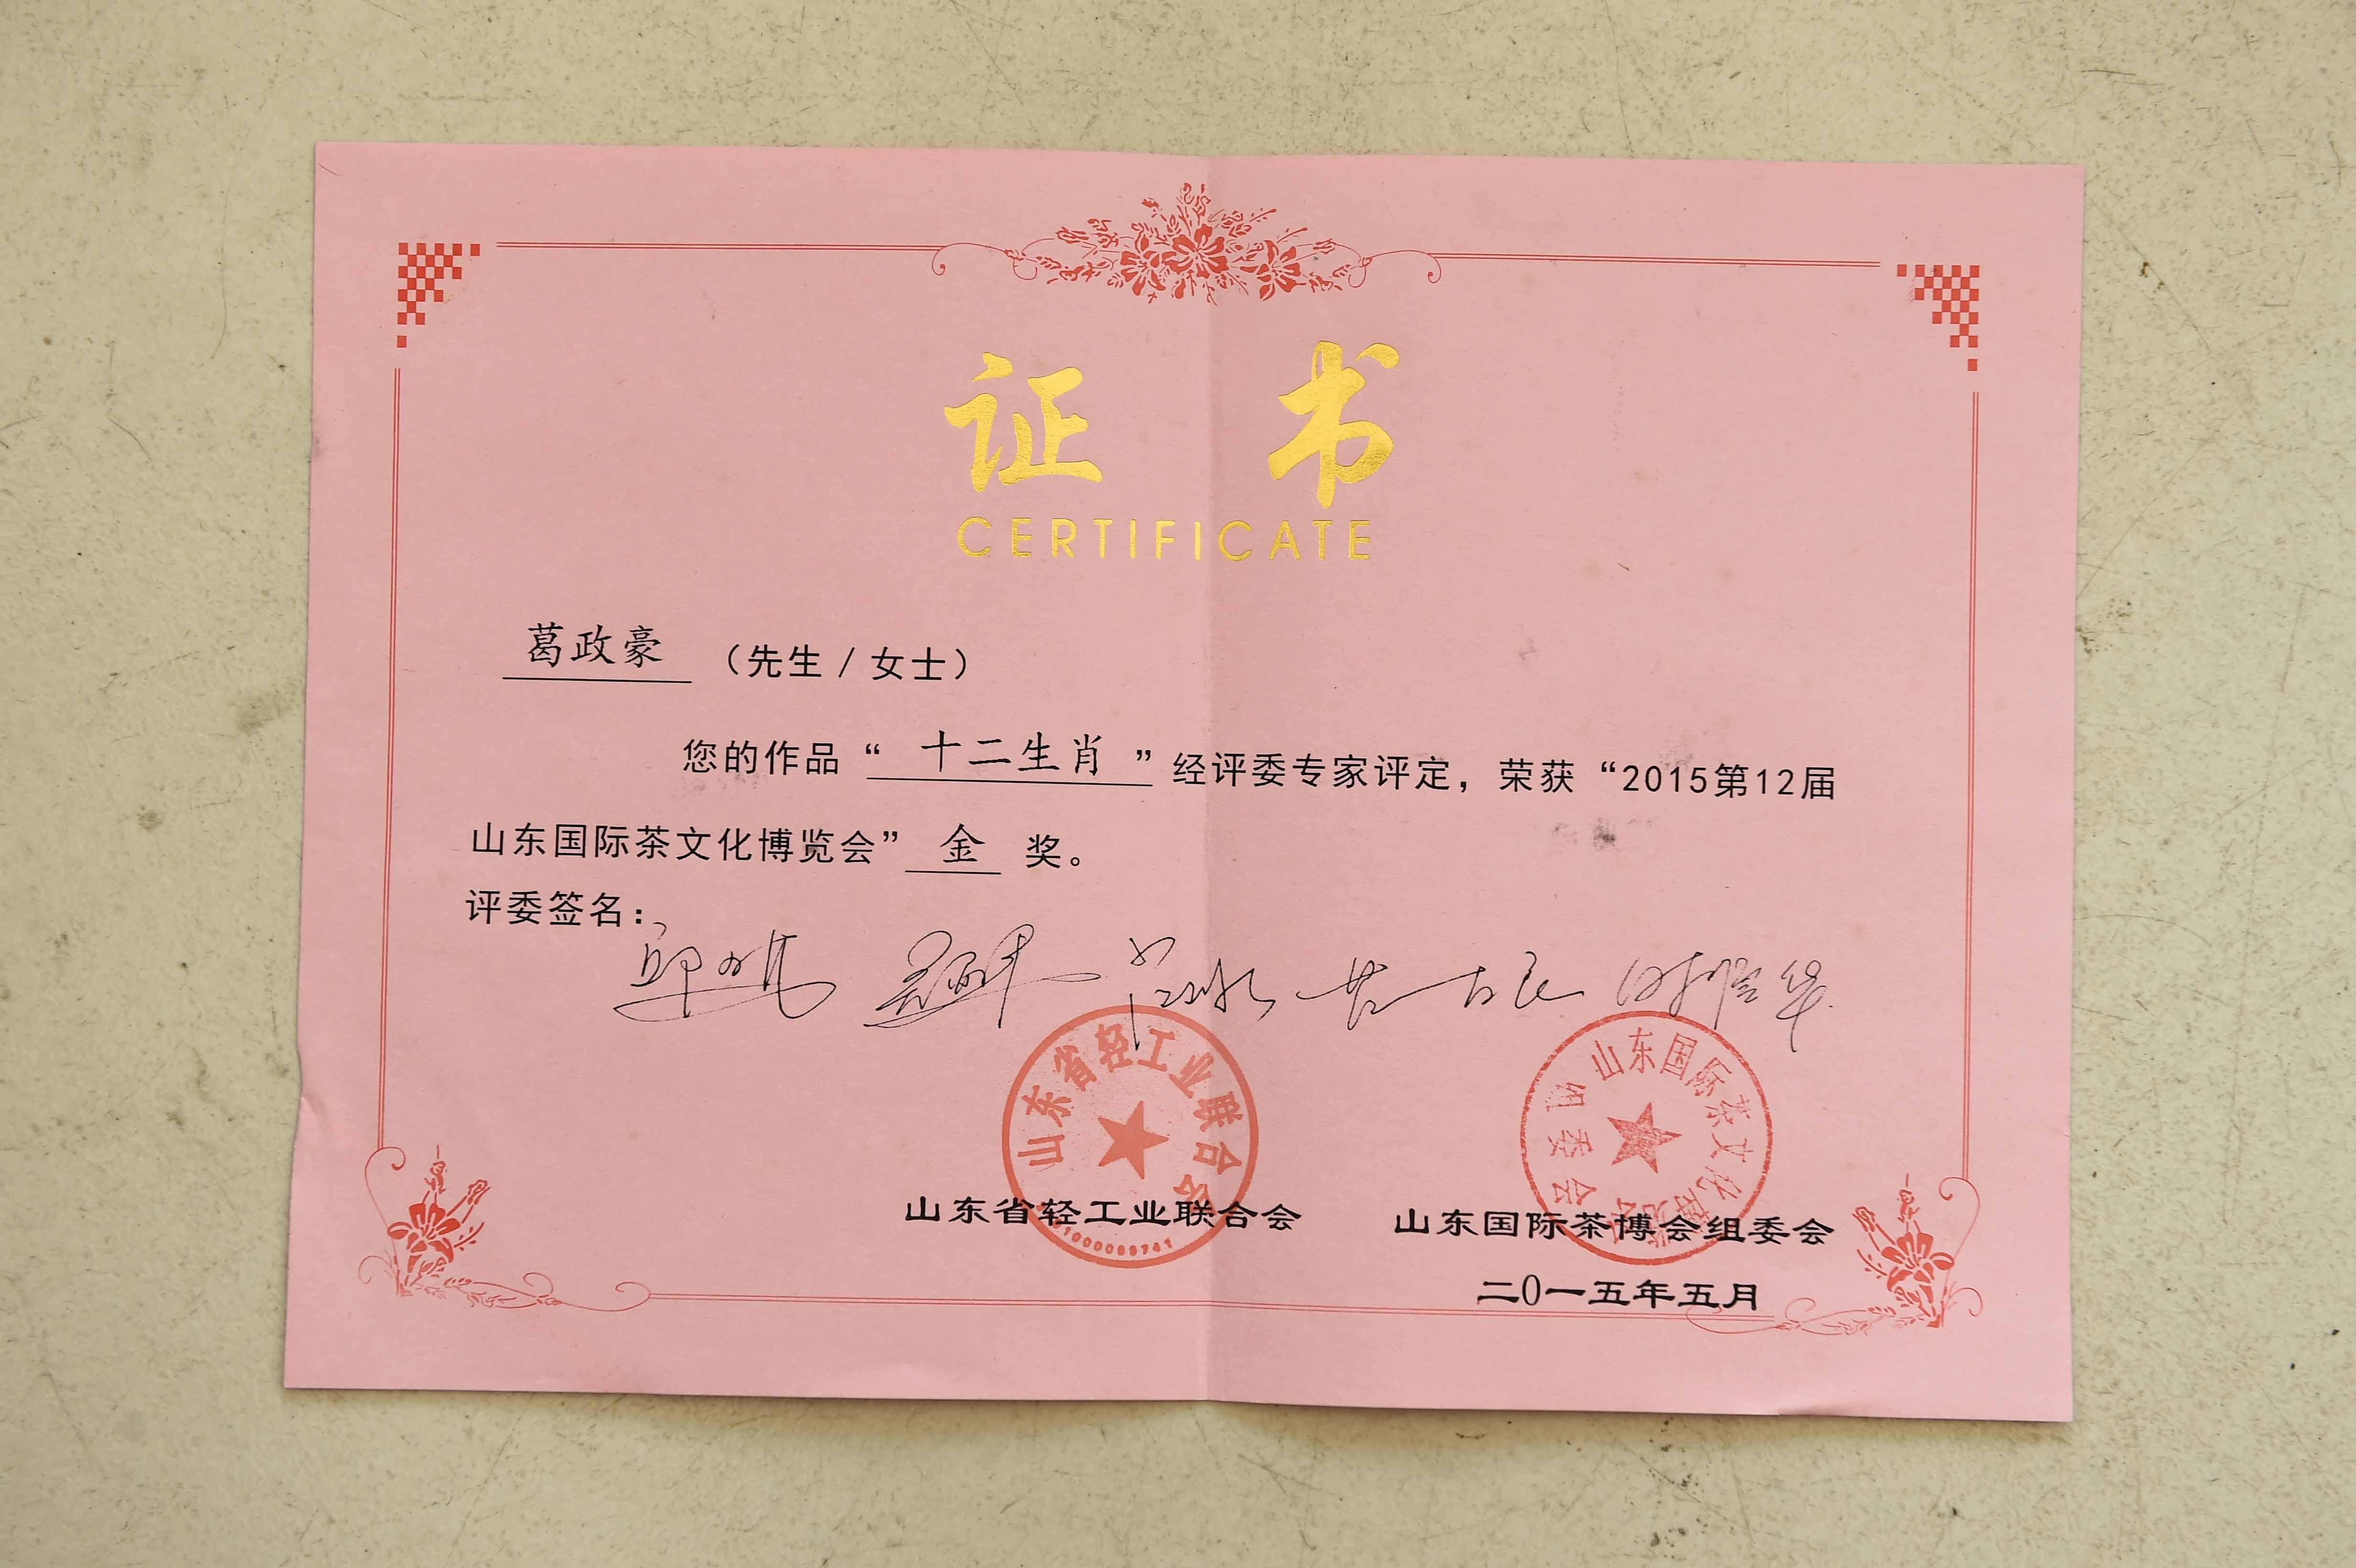 证书
CERTIFICATE
葛政豪 （先生／女士）
您的作品“十二生肖”经评委专家评定，荣获“2015第12届
山东国际茶文化博览会”金奖。
评委签名：
山东省轻工业联合会
山东国际茶文化博览会组委会
山东省轻工业联合会 山东国际茶博会组委会
二0一五年五月